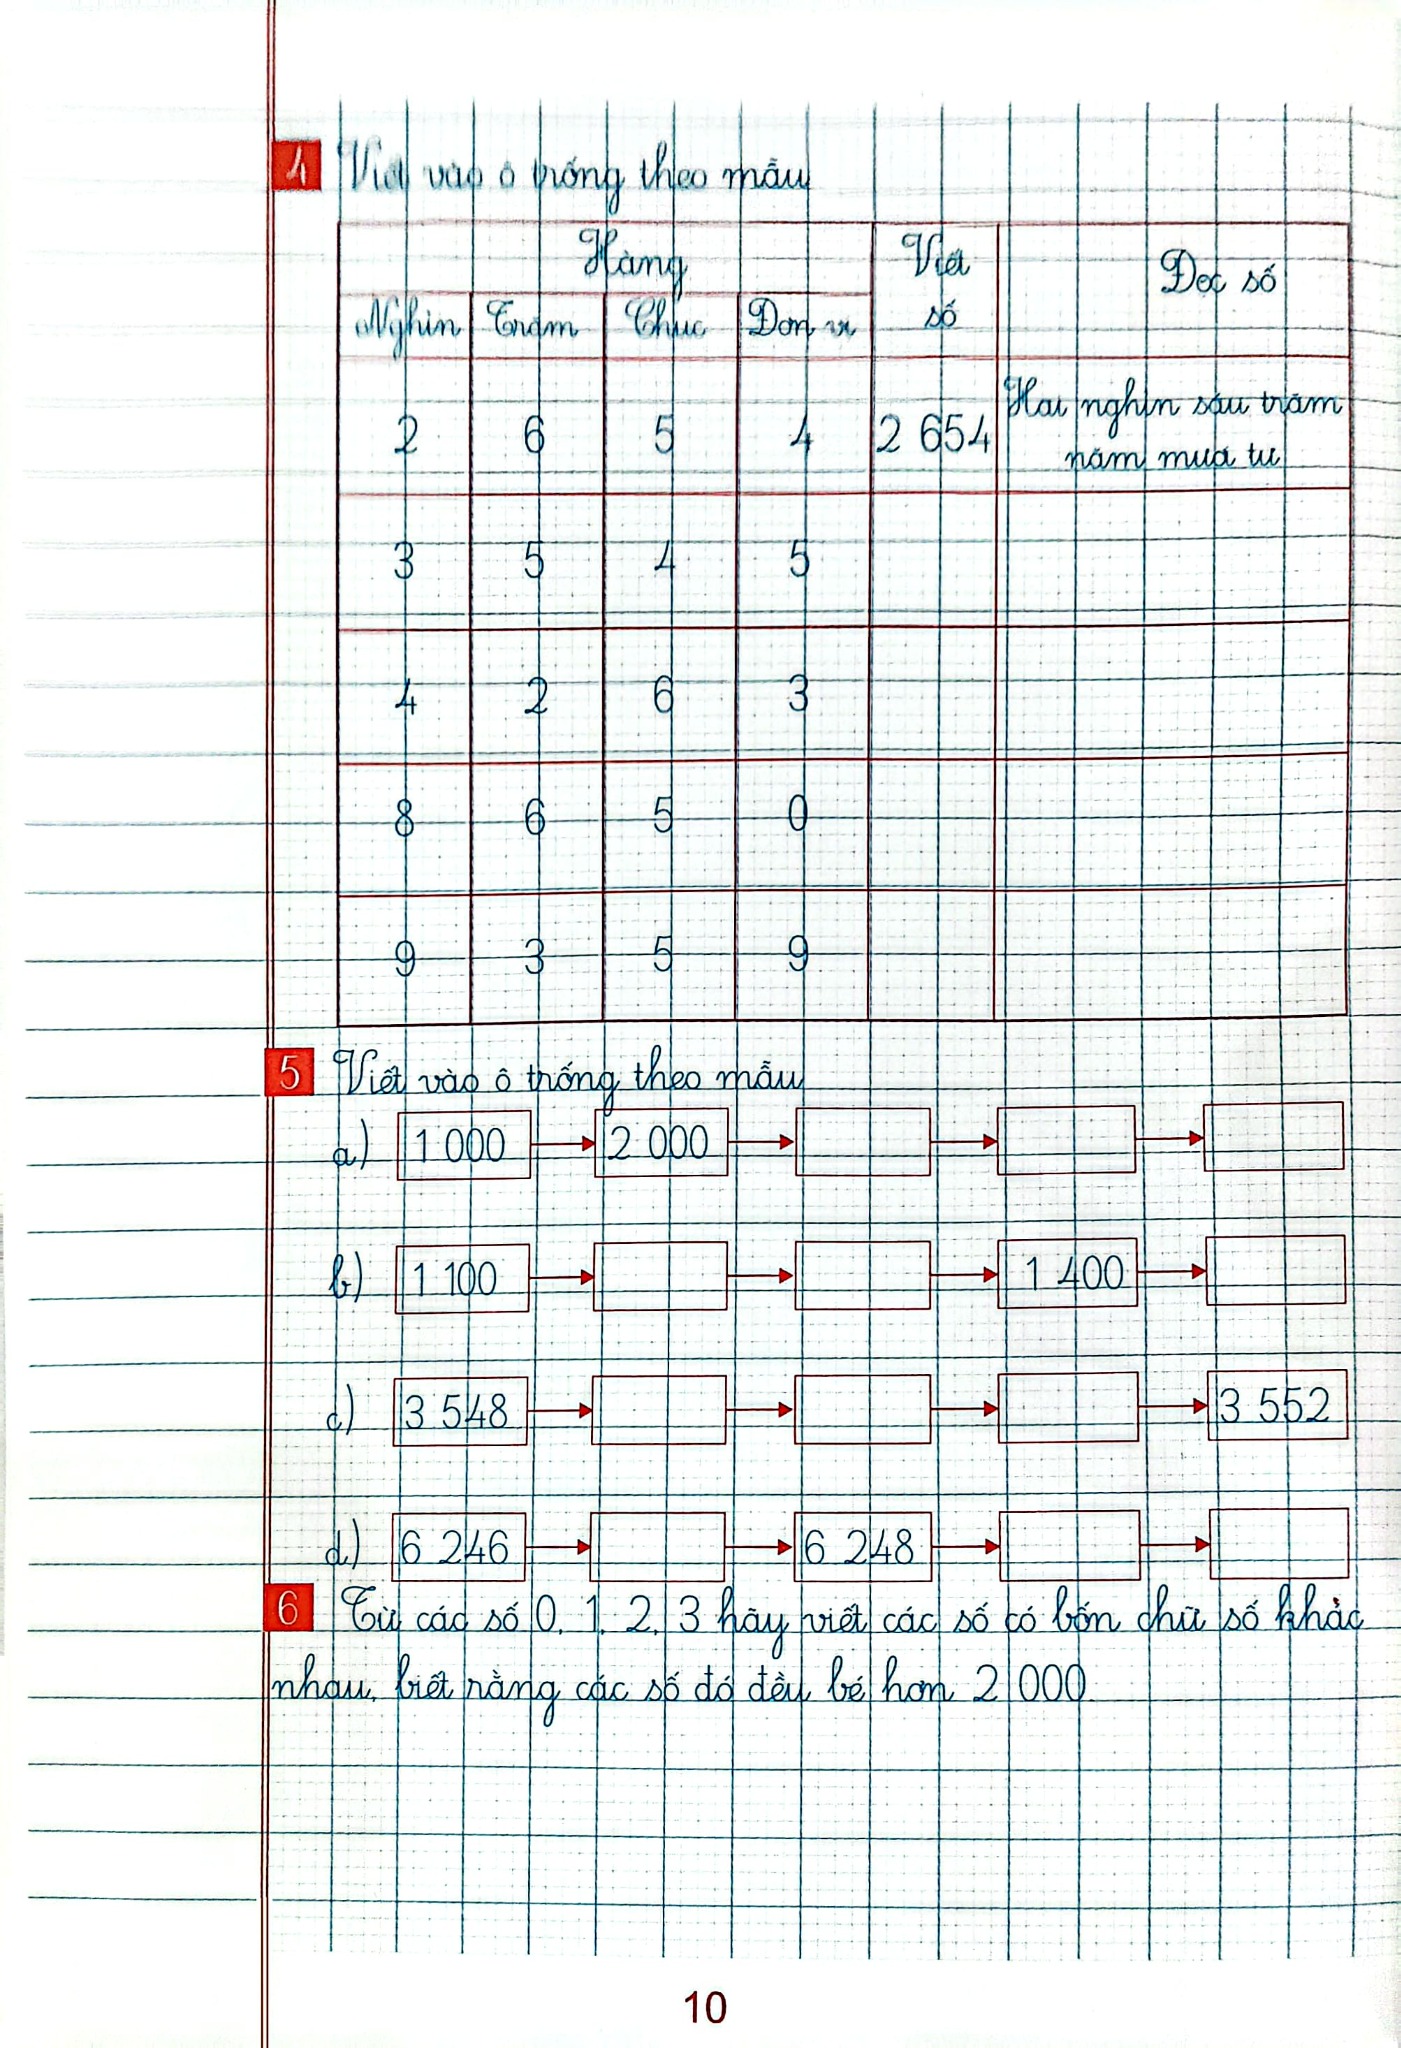 4 Viết vào ô trống theo mẫu
Hàng Viết số Đọc số
Nghìn Trăm Chục Đơn vị
2 6 5 4 2 654 Hai nghìn sáu trăm
năm mươi tư
3 5 4 5
4 2 6 3
8 6 5 0
9 3 5 9
5 Viết vào ô trống theo mẫu
a) 1 000 2 000
b) 1 100 1 400
c) 3 548 3 552
d) 6 246 6 248
6 Từ các số 0, 1, 2, 3 hãy viết các số có bốn chữ số khác
nhau, biết rằng các số đó đều bé hơn 2 000.
10